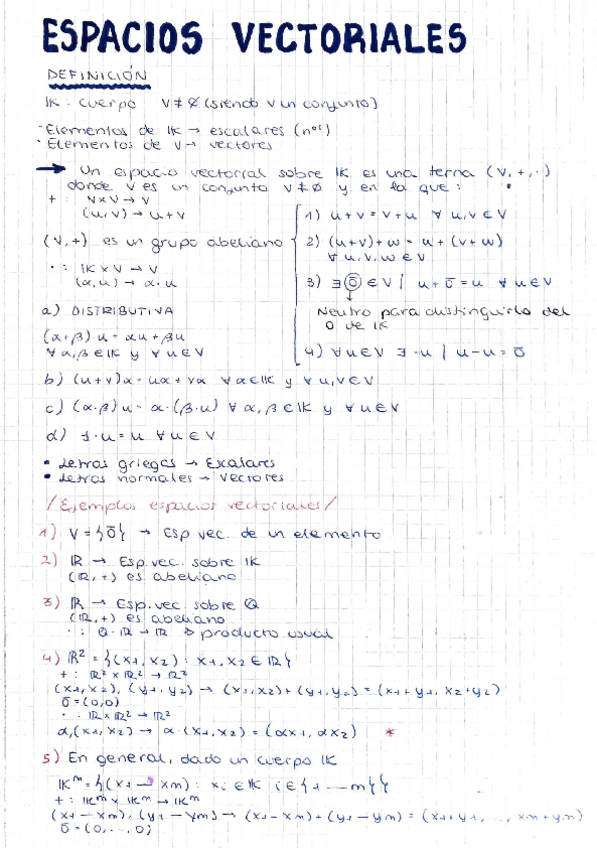 ESPACIOS VECTORIALES
DEFINICIÓN
IK: cuerpo V ≠ ∅ (siendo V un conjunto)
· Elementos de IK → escalares (nºs)
· Elementos de V → vectores
→ Un espacio vectorial sobre IK es una terna (V, +, ·)
donde V es un conjunto V ≠ ∅ y en la que:
+ : V×V → V
(u,v) → u+v
(V,+) es un grupo abeliano
1) u+v = v+u ∀ u,v ∈ V
2) (u+v)+w = u+(v+w)
∀ u,v,w ∈ V
3) ∃ 0̄ ∈ V / u+0̄ = u ∀ u ∈ V
Neutro para distinguirlo del
0 de IK
4) ∀ u ∈ V ∃ -u / u-u = 0̄
· : IK × V → V
(α,u) → α·u
a) DISTRIBUTIVA
(α+β)·u = αu + βu
∀ α,β ∈ IK y ∀ u ∈ V
b) (u+v)α = uα + vα ∀ α ∈ IK y ∀ u,v ∈ V
c) (α·β)u = α·(β·u) ∀ α,β ∈ IK y ∀ u ∈ V
d) 1·u = u ∀ u ∈ V
• Letras griegas → Escalares
• Letras normales → Vectores
/Ejemplos espacios vectoriales/
1) V = {0̄} → Esp vec. de un elemento
2) IR → Esp. vec. sobre IK
(IR,+) es abeliano
3) IR → Esp. vec. sobre Q
(IR,+) es abeliano
· : Q·IR → IR ⇒ producto usual
4) IR² = {(x1, x2) : x1, x2 ∈ IR}
+ : IR² × IR² → IR²
(x1,x2), (y1,y2) → (x1,x2)+(y1,y2) = (x1+y1, x2+y2)
0̄ = (0,0)
· : IR × IR² → IR²
α,(x1,x2) → α·(x1,x2) = (αx1, αx2) *
5) En general, dado un cuerpo IK
IKᵐ = {(x1 — xm) : xi ∈ IK i ∈ {1 --- m}}
+ : IKᵐ × IKᵐ → IKᵐ
(x1 — xm), (y1 — ym) → (x1 — xm) + (y1 — ym) = (x1+y1, ..., xm+ym)
0̄ = (0,...,0)